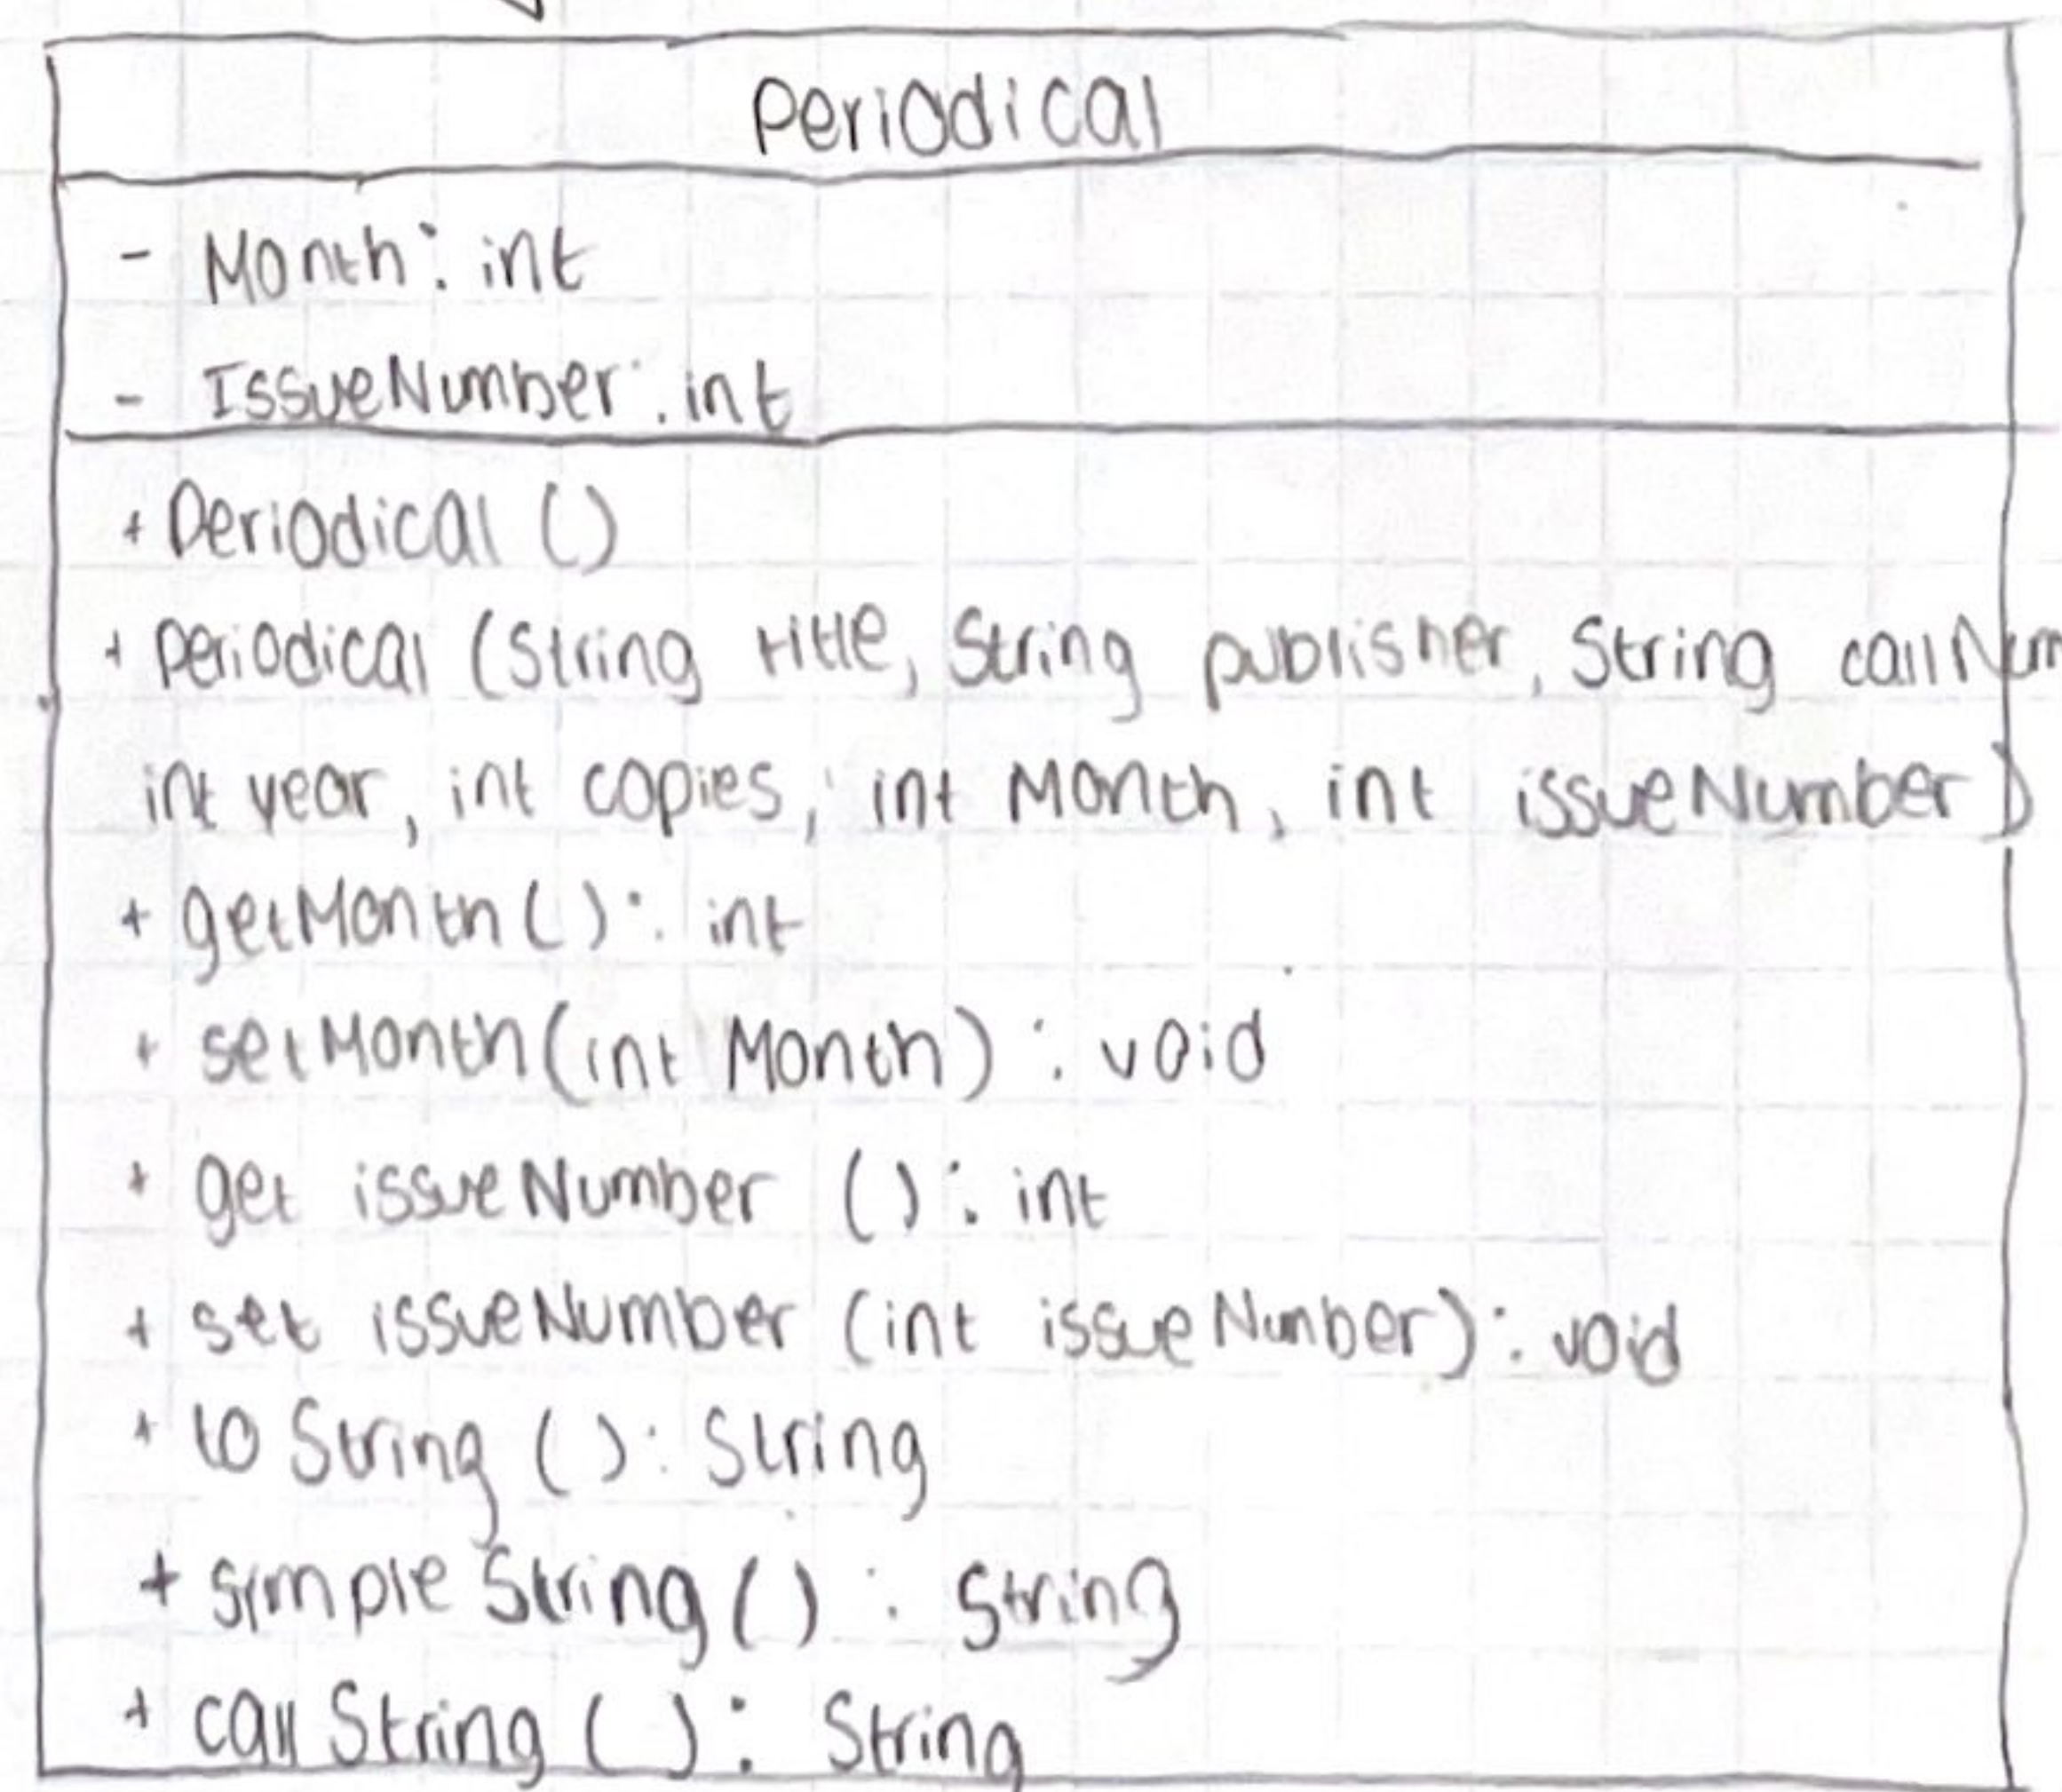 Periodical
- Month: int
- IssueNumber: int
+ Periodical ()
+ Periodical (String title, String publisher, String callNum
int year, int copies, int Month, int issueNumber)
+ getMonth(): int
+ setMonth(int Month) : void
+ get issueNumber (): int
+ set issueNumber (int issueNumber): void
+ to String (): String
+ simple String() : String
+ call String (): String